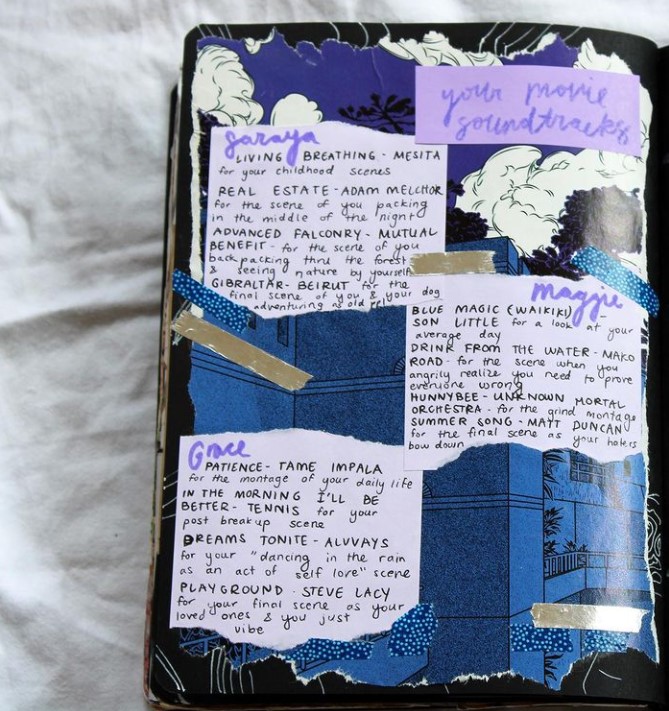 your movie
soundtracks
Saraya
LIVING BREATHING - MESITA
for your childhood scenes
REAL ESTATE - ADAM MELCHOR
for the scene of you packing
in the middle of the night
ADVANCED FALCONRY - MUTUAL
BENEFIT - for the scene of you
backpacking thru the forest
& seeing nature by yourself
GIBRALTAR - BEIRUT for the
final scene of you & your dog
adventuring as old
Magpie
BLUE MAGIC (WAIKIKI) -
SON LITTLE for a look at your
average day
DRINK FROM THE WATER - MAKO
ROAD - for the scene when you
angrily realize you need to prove
everyone wrong
HUNNYBEE - UNKNOWN MORTAL
ORCHESTRA - for the grind montage
SUMMER SONG - MATT DUNCAN
for the final scene as your haters
bow down
Grace
PATIENCE - TAME IMPALA
for the montage of your daily life
IN THE MORNING I'LL BE
BETTER - TENNIS for your
post breakup scene
DREAMS TONITE - ALVVAYS
for your "dancing in the rain
as an act of self love" scene
PLAYGROUND - STEVE LACY
for your final scene as your
loved ones & you just
vibe